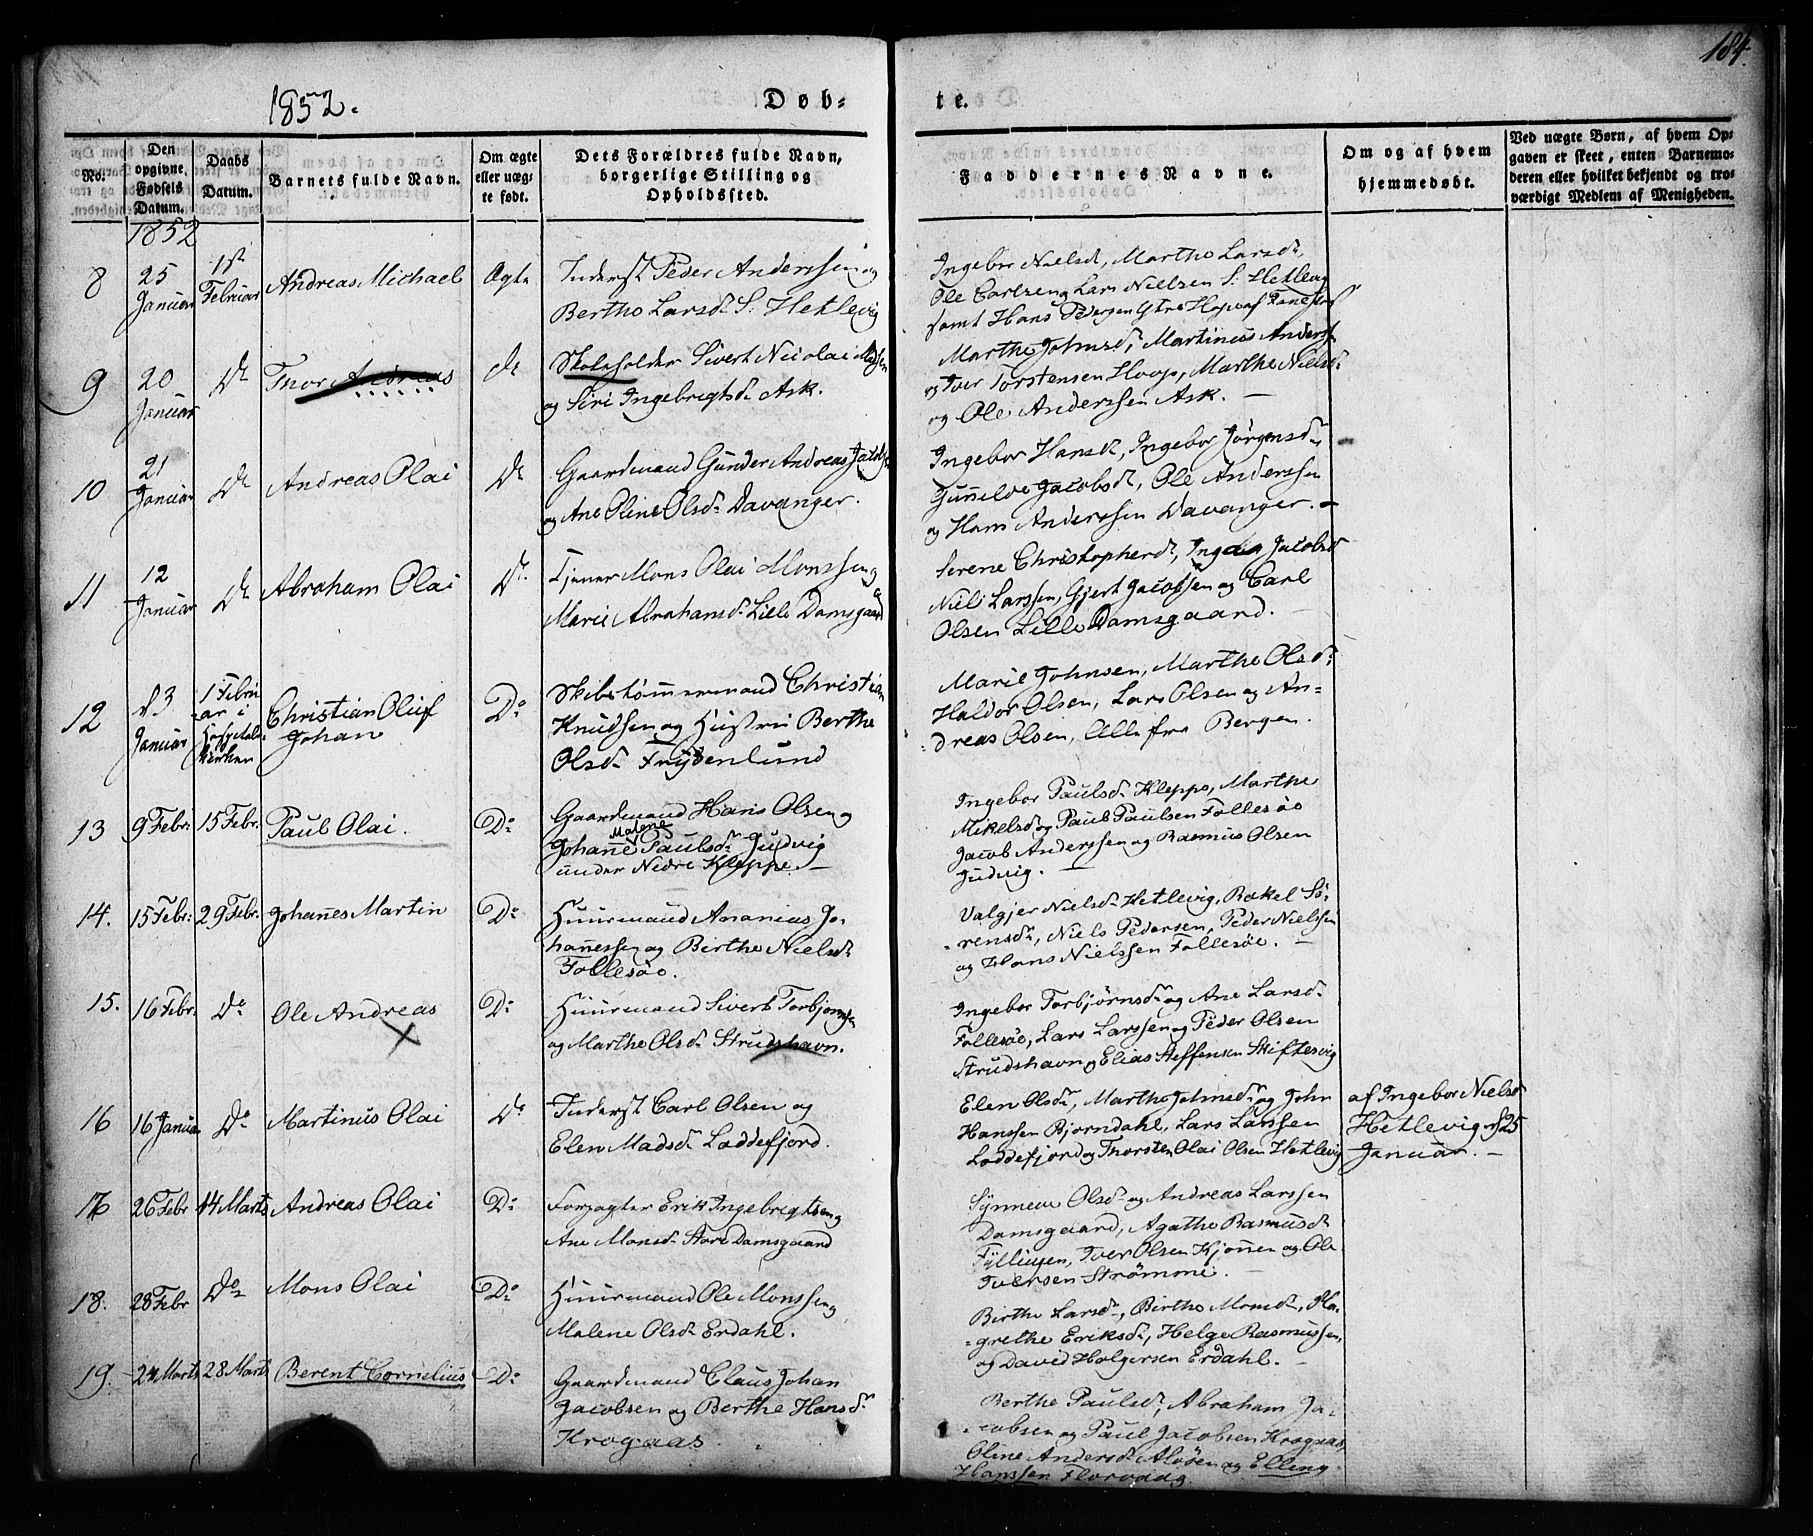 184.
1852.
Døb-
te.
No.
Den opgivne Fødsels Datum.
Daabs Datum.
Barnets fulde Navn.
Om ægte eller uægte født.
Dets Forældres fulde Navn, borgerlige Stilling og Opholdssted.
Faddernes Navne.
Om og af hvem hjemmedøbt.
Ved uægte Børn, af hvem Opgaven er skeet, enten Barnemoderen eller hvilket bekjendt og troværdigt Medlem af Menigheden.
1852
8
25 Januar
1st Februar
Andreas Michael
Ægte
Inderst Peder Anderssen og
Bertho Larsd. S. Hetlevig
Ingebor Nielsd, Martho Larsd,
Ole Carlsen og Lars Nielsen S. Hetlevig
samt Hans Pedersen
9
20 Januar
Do
Thor Andreas
do
Skoleholder Sivert Nicolai Madsen
og Siri Ingebrigtsd. Ask.
Marthe Johnsd, Martinus Anderss
og Iver Torstensen Hoop, Marthe Nielsd.
og Ole Anderssen Ask. —
10
21 Januar
Do
Andreas Olai
Do
Gaardmand Gunder Andreas Jacobsen
og Ane Oline Olsd. Davanger.
Ingebor Hansd, Ingebor Jörgensd.,
Gunnelve Jacobsd, Ole Anderssen
og Hans Anderssen Davanger. —
11
12 Januar
Do
Abraham Olai
Do.
Tjener Mons Olai Monssen og
Marie Abrahamsd. Lille Damsgaard
Serene Christopherd, Jacobsd
Niels Larssen, Gjert Jacobsen og Carl
Olsen Lille Damsgaard.
12
d 3 Januar
1 Febru-
ar i
Hospitals
Kirken
Christian Oluf
Johan
Do
Skibstømmermand Christian
Knudsen og Hustru Berthe
Olsd. Frydenlund
Marie Johnsen, Marthe Olsd.
Haldor Olsen, Lars Olsen og An-
dreas Olsen, Alle fra Bergen.
13
9 Febr:
15 Febr.
Paul Olai.
Do
Gaardmand Hans Olsen og
Malene
Johanne Paulsd. Judvig
under Nedre Kleppe. —
Ingebor Paulsd. Kleppo, Marthe
Mikelsd og Paul Paulsen Follesøe
Jacob Anderssen og Rasmus Olsen
Judvig. —
14.
15 Febr:
29 Febr.
Johannes Martin
Do
Huusmand Ananias Jo-
hannessen og Birthe Nielsd.
Follesøe.
Valgjer Nielsd. Hetlevig, Rakel Sö-
rensd., Niels Pedersen, Peder Nielssen
og Hans Nielssen Follesøe. —
15.
16 Febr.
Do
Ole Andreas
Do
Huusmand Sivert Torbjørnsen
og Marthe Olsd. Strudshavn.
Ingebor Torbjørnsd. og Ane Larsd.
Follesøe, Lars Larssen og Peder Olsen
Strudshavn og Elias Steffensen Skiftesvig
16
16 Januar
Do
Martinus Olai
Do
Inderst Carl Olsen og
Elen Madsd. Loddefjord.
Elen Olsd., Martho Johnsd. og John
Hanssen Bjørndahl, Lars Larssen
Loddefjord og Thorsten Olai Olsen Hetlevig
af Ingebor Nielsd
Hetlevig d 25
Januar. —
17
26 Febr
14 Marts
Andreas Olai
Do
Forpagter Erik Ingebregtsen og
Ane Monsd. Store Damsgaard
Synneve Olsd. og Andreas Larssen
Damsgaard, Agathe Rasmusd.
Fyllingen, Iver Olsen Kjønnen og Ole
Iversen Strømme. —
18.
28 Febr
Do
Mons Olai
Do
Huusmand Ole Monssen og
Malene Olsd. Erdahl.
Birthe Larsd., Birtho Monsd., Ma-
grethe Eriksd., Helge Rasmussen,
og David Holgersen Erdahl. —
19.
24 Marts
28 Marts
Berent Cornelius
Do
Gaardmand Claus Johan
Jacobsen og Berthe Hansd.
Krogaas.
Berthe Paulsd, Abraham Ja-
cobsen og Paul Jacobsen Krogaas,
Oline Andersd. Aløen og Elling
Hanssen Florvaag.